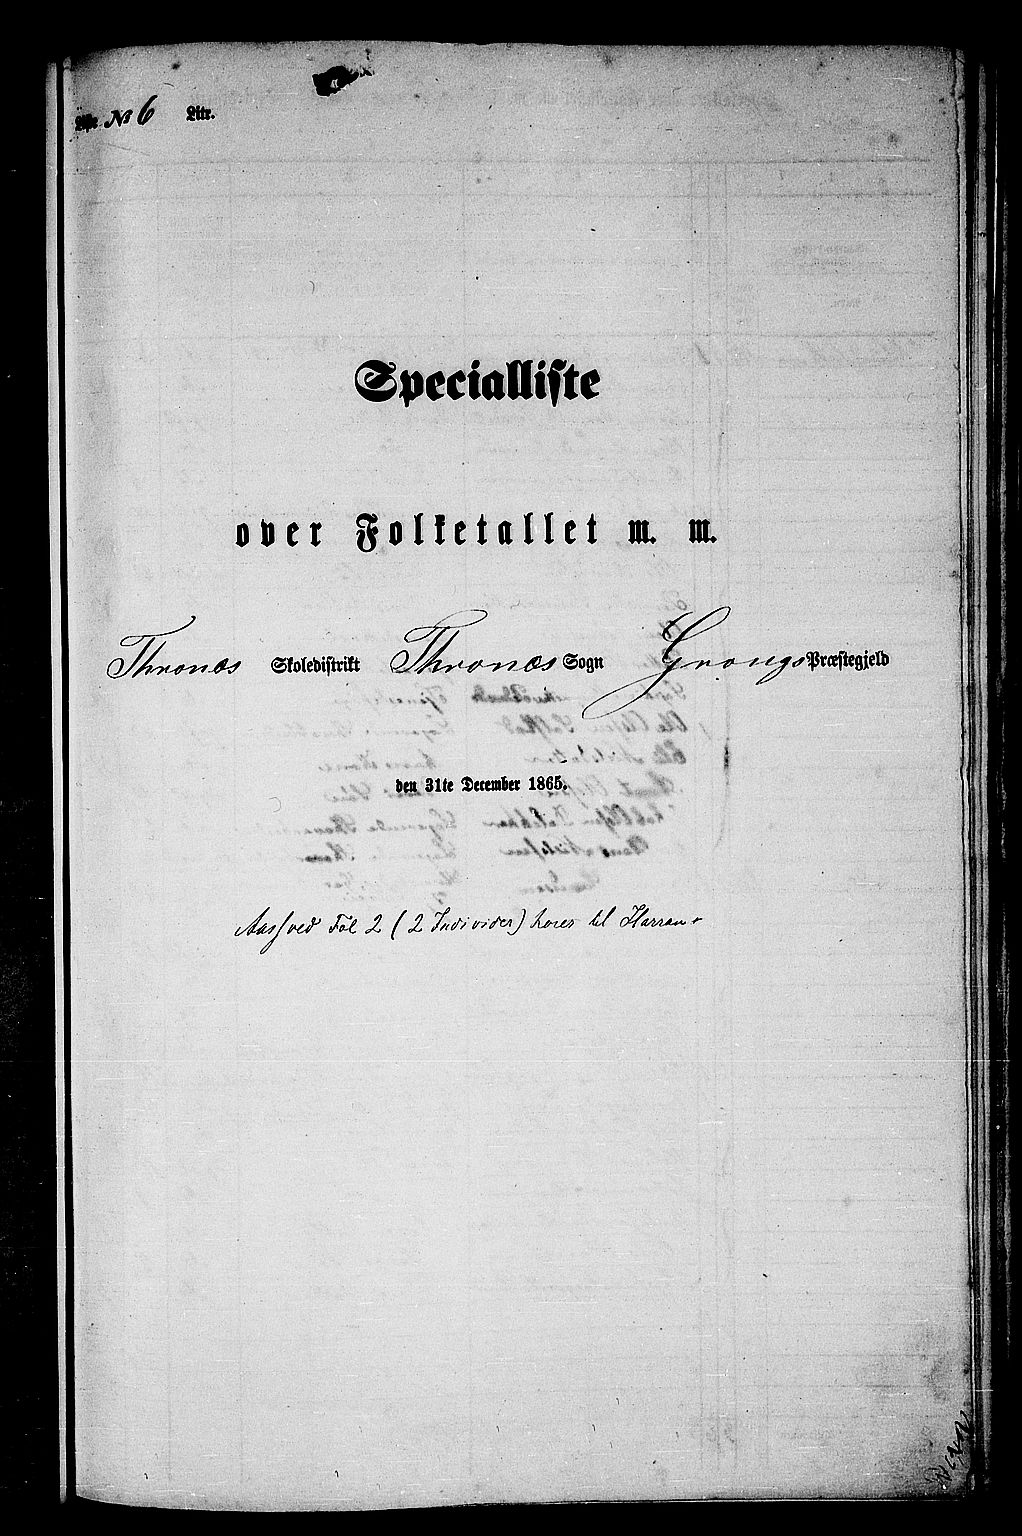 № 6 Litr.
Specialliste
over Folketallet m. m.
Thronæs Skoledistrikt Thronæs Sogn Grongs Præstegjeld
den 31te December 1865.
Fol 2 (2 Individer) hører til Harran